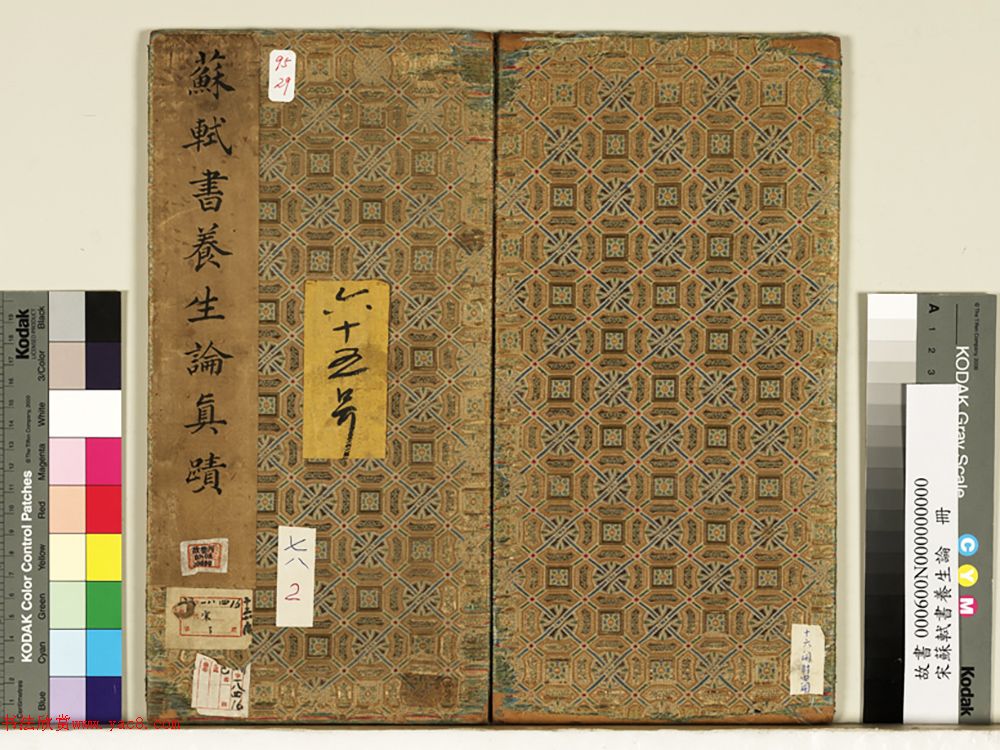 蘇軾書養生論真蹟
95
29
六十五号
七八
2
十六開對四開
八四16
故書 000600N000000000
宋蘇軾書養生論 冊
KODAK Color Control Patches
© The Tiffen Company, 2000
Kodak
LICENSED PRODUCT
Black
3/Color
White
Magenta
Red
Yellow
Green
Cyan
Blue
Centimetres
KODAK Gray Scale
© The Tiffen Company, 2000
Kodak
A 1 2 3
C
Y
M
书法欣赏www.yac8.com